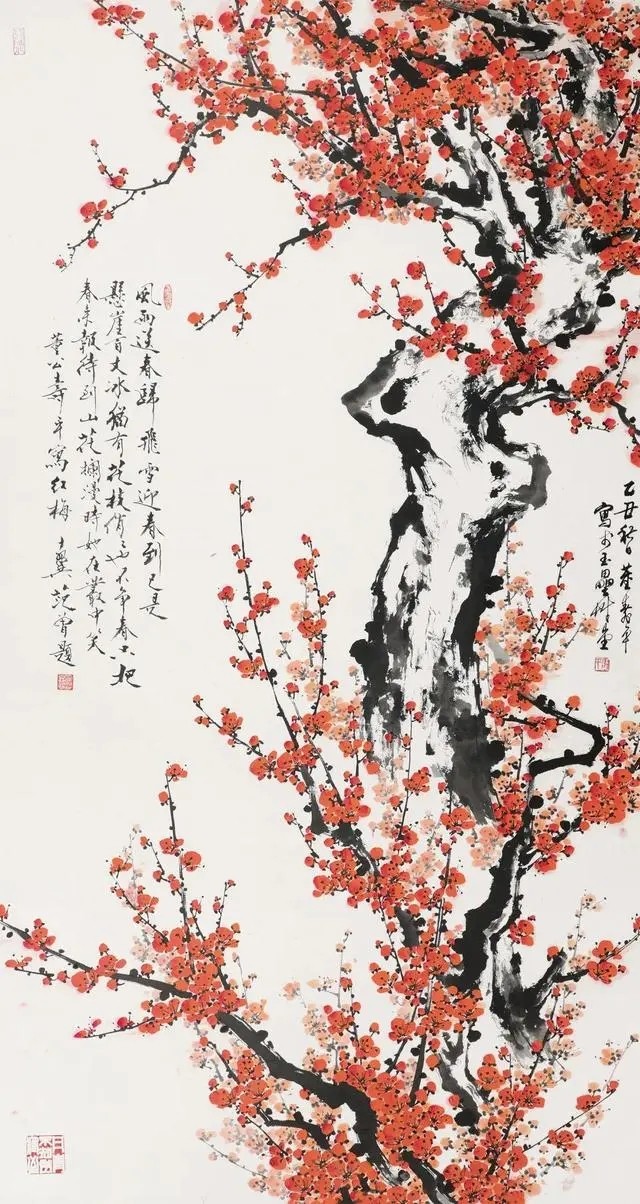 乙丑秋日董壽平
寫於玉
風雨送春歸飛雪迎春到已是
懸崖百丈冰猶有花枝俏〻也不爭春只把
春來報待到山花爛漫時她在叢中笑
董公壽平寫紅梅 十翼范曾題